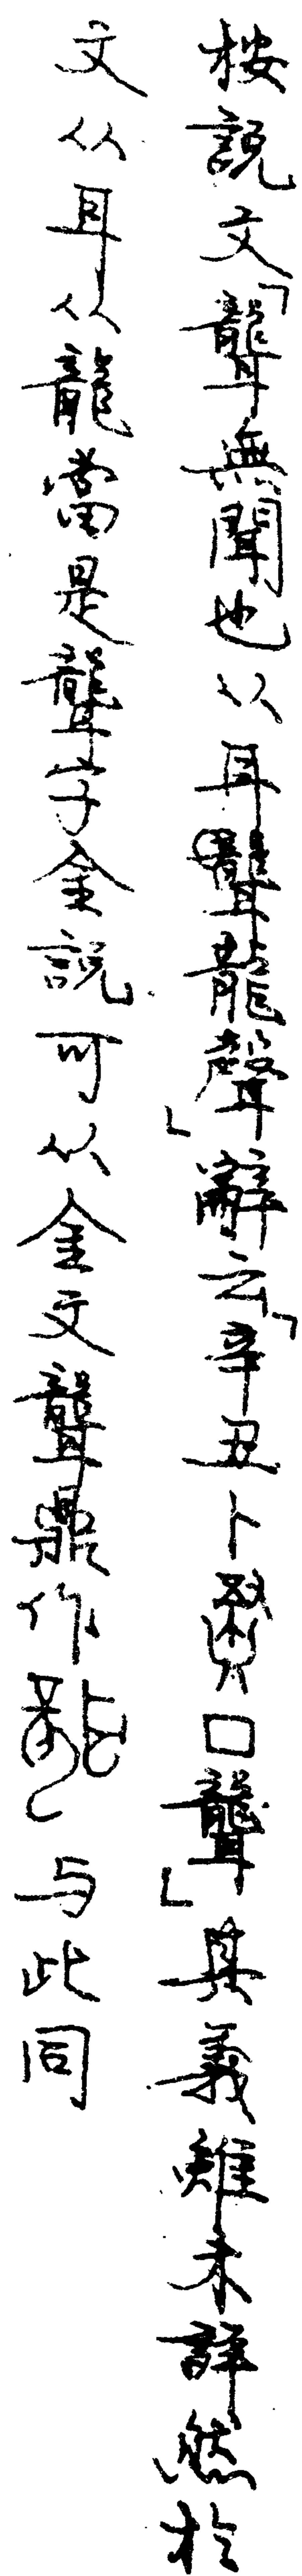 桉說文「聾無聞也从耳龍聲」辭云「辛丑卜貞囗聾」其義雖未詳然於
文从耳从龍當是聾字金說可从金文聾鼎作与此同